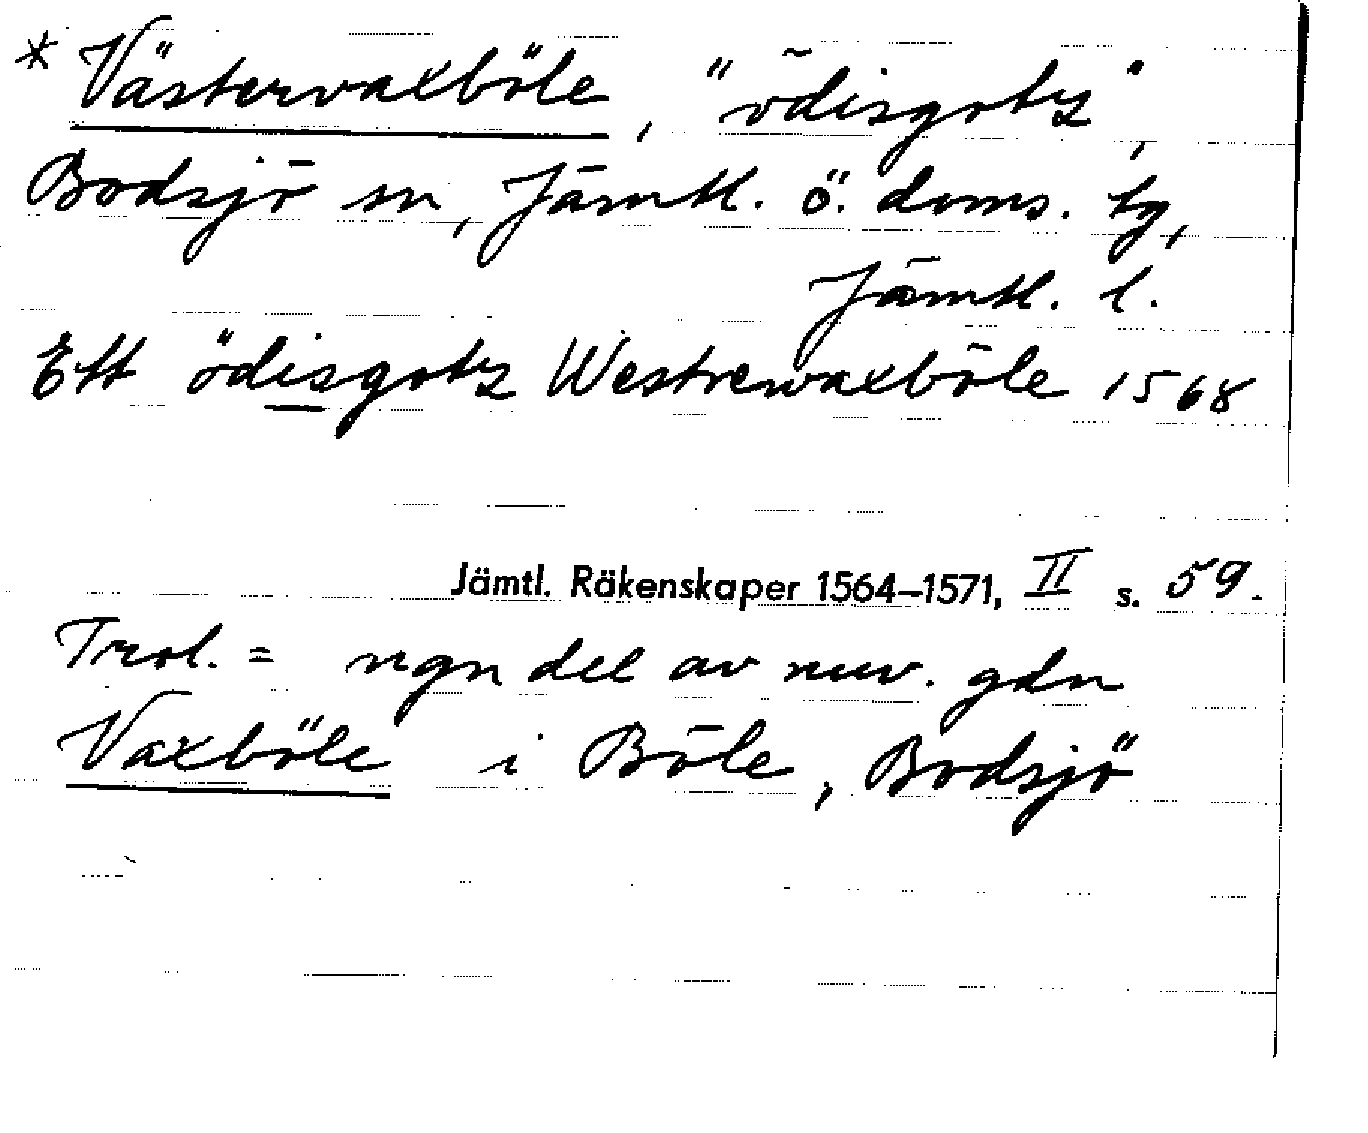 * Västervaxböle, "ödisgotz",
Bodsjö sn, Jämtl. ö. doms. tg,
Jämtl. l.
Ett ödisgotz Westrewaxböle 1568
Jämtl. Räkenskaper 1564–1571, II s. 59.
Trol. = ngn del av nuv. gdn
Vaxböle i Böle, Bodsjö